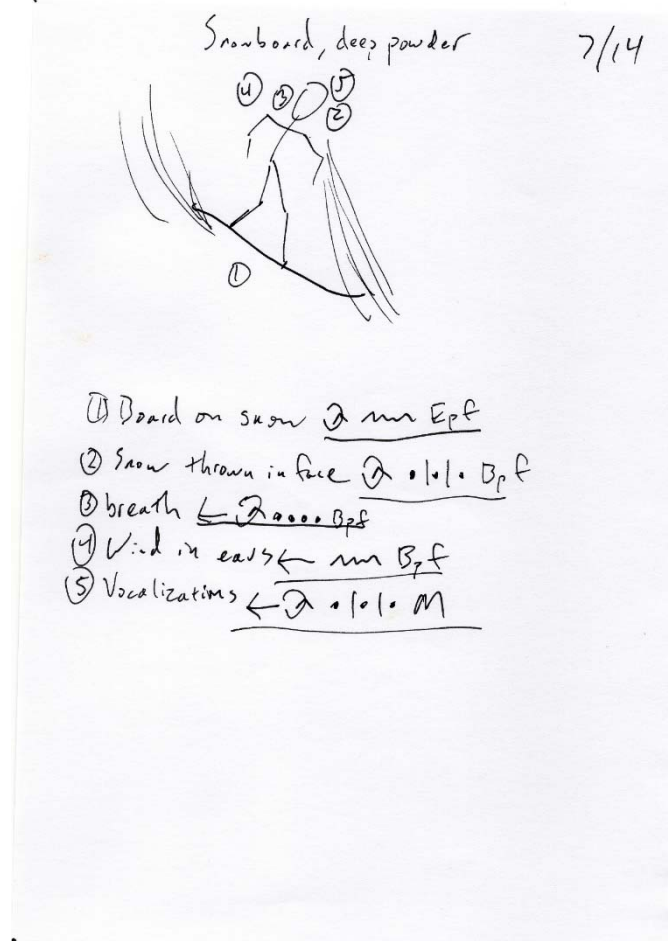 Snowboard, deep powder 7/14
④ ③ ⑤
②
①
① Board on snow Epf
② Snow thrown in face Bpf
③ breath ← Bpf
④ Wind in ears ← Bpf
⑤ Vocalizations ← M